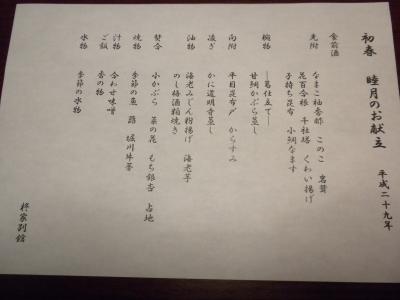 初春　睦月のお献立
平成二十九年
食前酒
先附　なまこ柚香酢　このこ　岩茸
花百合根　千社塔　くわい揚げ
子持ち昆布　小鯛なます
椀物　―葛仕立て―
甘鯛かぶら蒸し
向附　平目昆布〆　からすみ
凌ぎ　かに道明寺蒸し
油物　海老みじん粉揚げ　海老芋
のし梅酒粕焼き
焚合　小かぶら　菜の花　もち銀杏　占地
焼物　季節の魚　蕗　堀川牛蒡
汁物　合わせ味噌
ご飯　香の物
水物　季節の水物
柊家別館